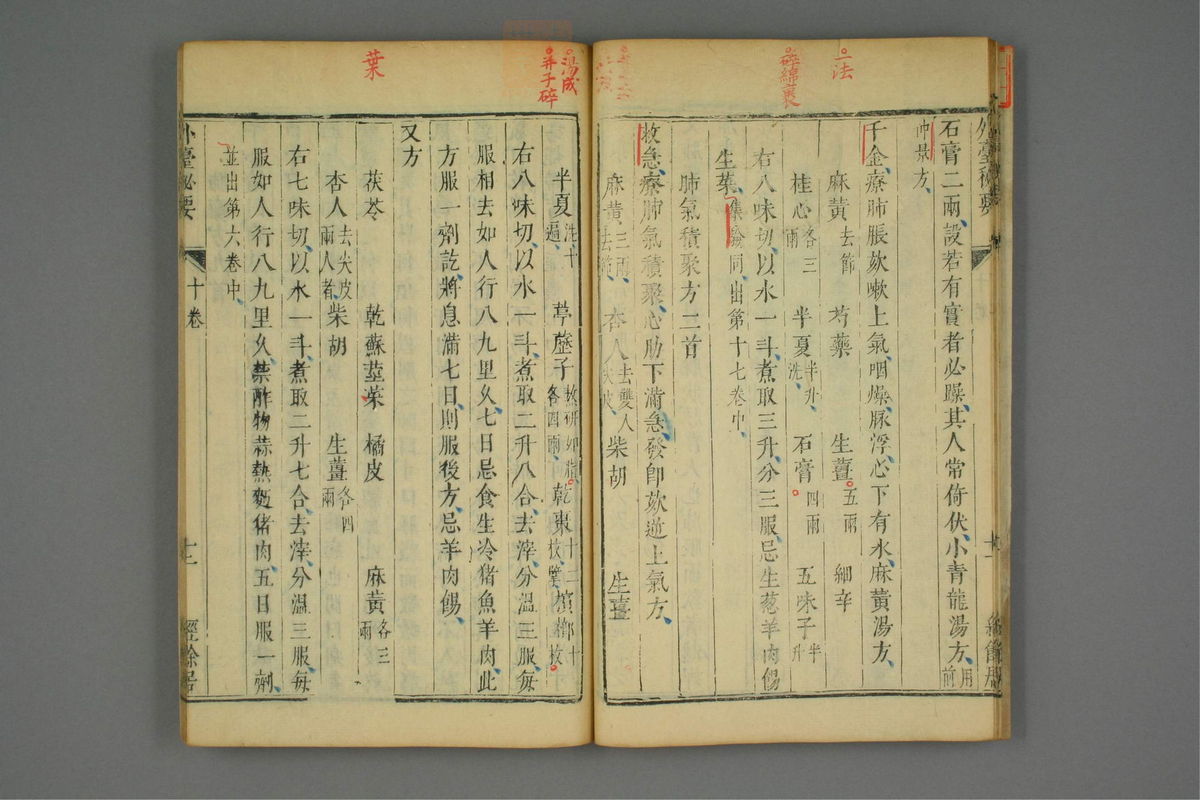 二法
碎綿裹
外臺秘要
石膏二兩設若有實者必躁其人常倚伏小青龍湯方用前
仲景方
千金療肺脹欬嗽上氣咽燥脉浮心下有水麻黃湯方
麻黃去節 芍藥 生薑五兩 細辛
桂心各三兩 半夏半升洗 石膏四兩 五味子半升
右八味切以水一斗煮取三升分三服忌生葱羊肉餳
生菜集驗同出第十七卷中
肺氣積聚方二首
救急療肺氣積聚心肋下滿急發即欬逆上氣方
麻黃三兩去節 杏人去雙人尖皮 柴胡 生薑
湯成
并子碎
葉
半夏洗十遍 葶藶子熬研如脂各四兩 乾棗十二枚擘 檳榔十枚
右八味切以水一斗煮取二升八合去滓分溫三服每
服相去如人行八九里久七日忌食生冷猪魚羊肉此
方服一劑訖將息滿七日則服後方忌羊肉餳
又方
茯苓 乾蘇莖葉 橘皮 麻黃各三兩
杏人去尖皮兩人者 柴胡 生薑各四兩
右七味切以水一斗煮取二升七合去滓分溫三服每
服如人行八九里久禁酢物蒜熱麪猪肉五日服一劑
並出第六卷中
外臺秘要 十卷 十一 經餘居